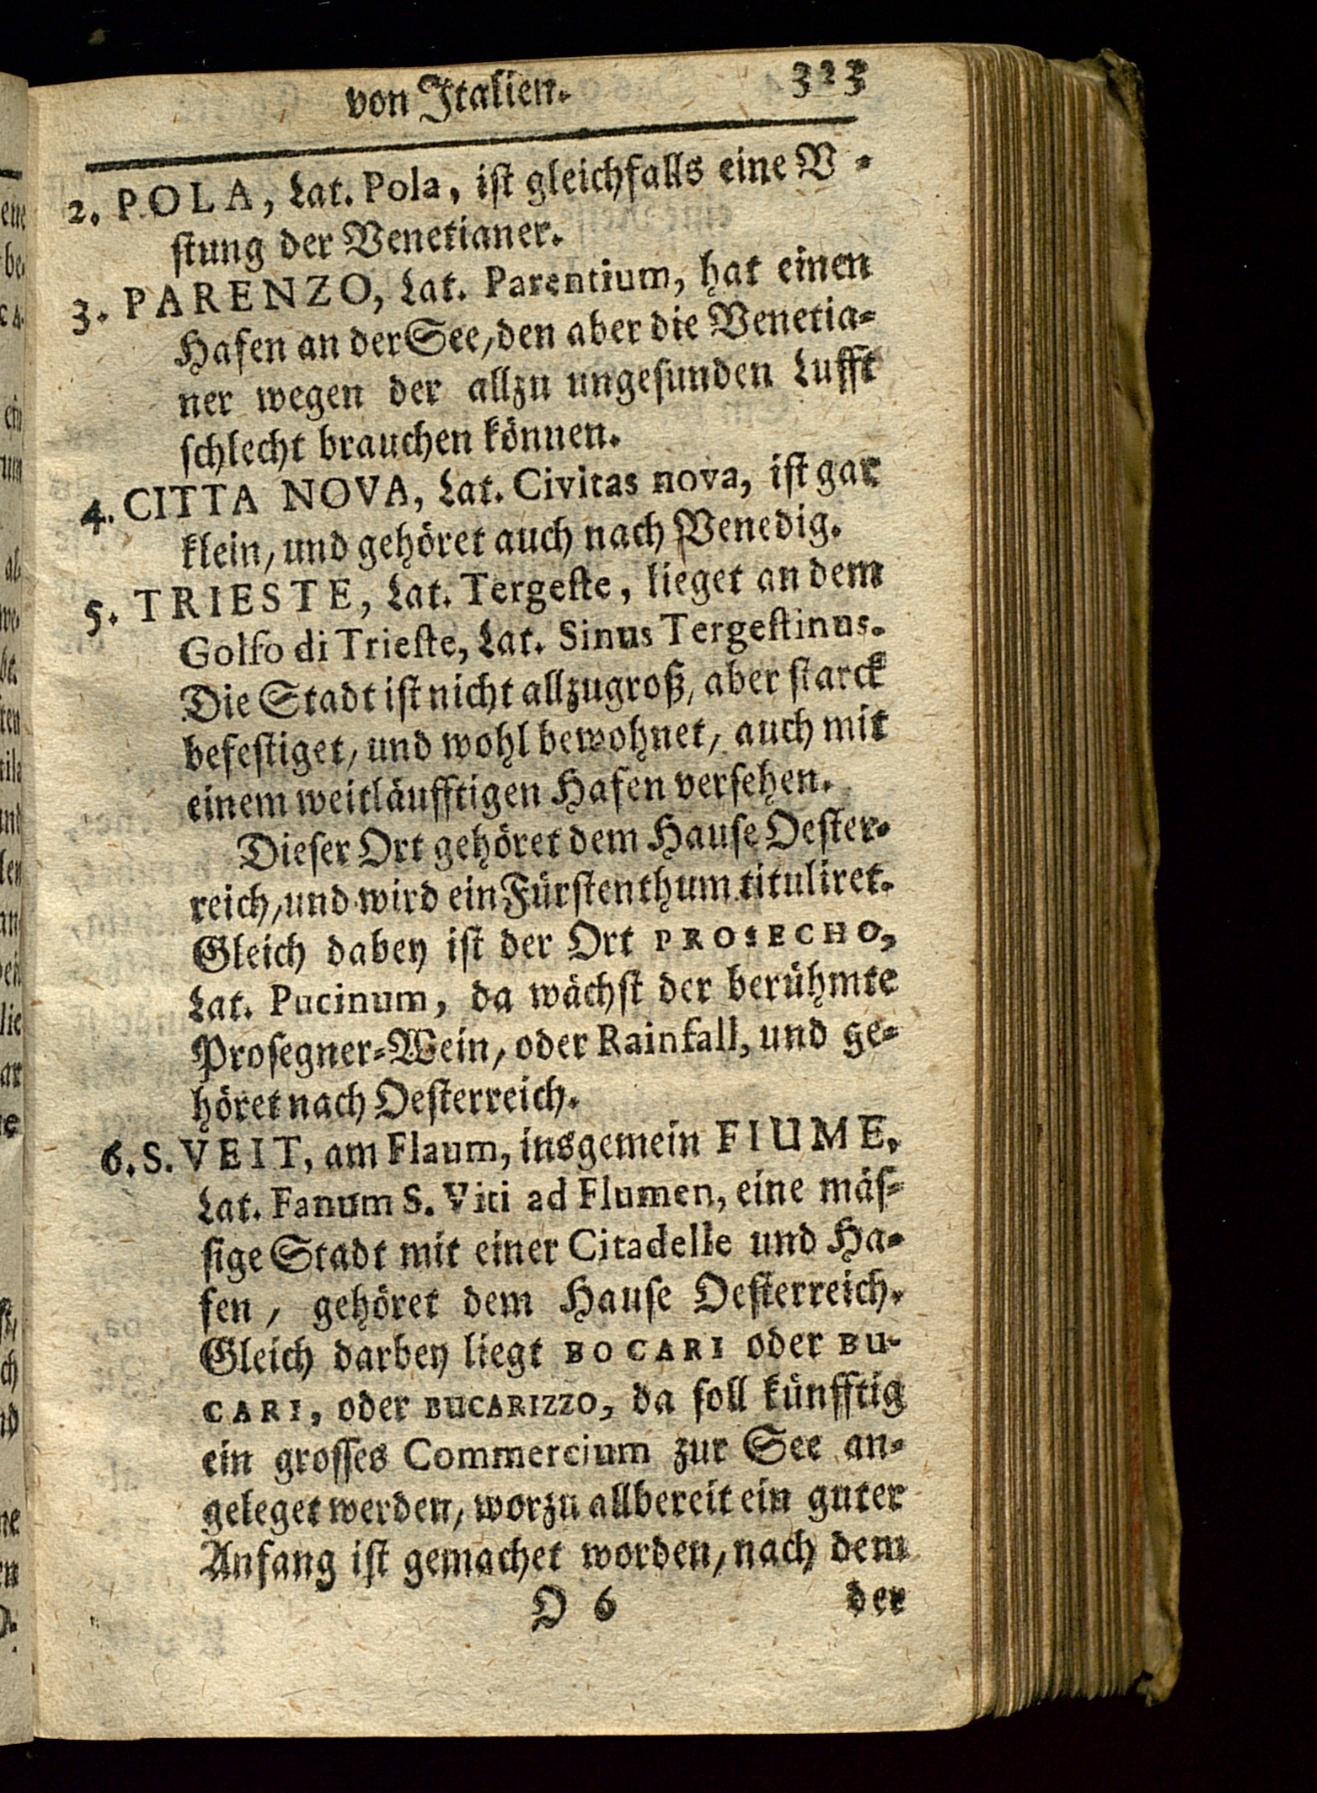 von Italien. 323
2. POLA, Lat. Pola, ist gleichfalls eine V -
stung der Venetianer.
3. PARENZO, Lat. Parentium, hat einen
Hafen an der See, den aber die Venetia-
ner wegen der allzu ungesunden Lufft
schlecht brauchen können.
4. CITTA NOVA, Lat. Civitas nova, ist gar
klein, und gehöret auch nach Venedig.
5. TRIESTE, Lat. Tergeste, lieget an dem
Golfo di Trieste, Lat. Sinus Tergestinus.
Die Stadt ist nicht allzugroß, aber starck
befestiget, und wohl bewohnet, auch mit
einem weitläufftigen Hafen versehen.
Dieser Ort gehöret dem Hause Oester-
reich, und wird ein Fürstenthum tituliret.
Gleich dabey ist der Ort PROSECHO,
Lat. Pucinum, da wächst der berühmte
Prosegner-Wein, oder Rainfall, und ge-
höret nach Oesterreich.
6. S. VEIT, am Flaum, insgemein FIUME,
Lat. Fanum S. Viti ad Flumen, eine mäs-
sige Stadt mit einer Citadelle und Ha-
fen, gehöret dem Hause Oesterreich.
Gleich darbey liegt BOCARI oder BU-
CARI, oder BUCARIZZO, da soll künfftig
ein grosses Commercium zur See an-
geleget werden, worzu allbereit ein guter
Anfang ist gemachet worden, nach dem
O 6 der